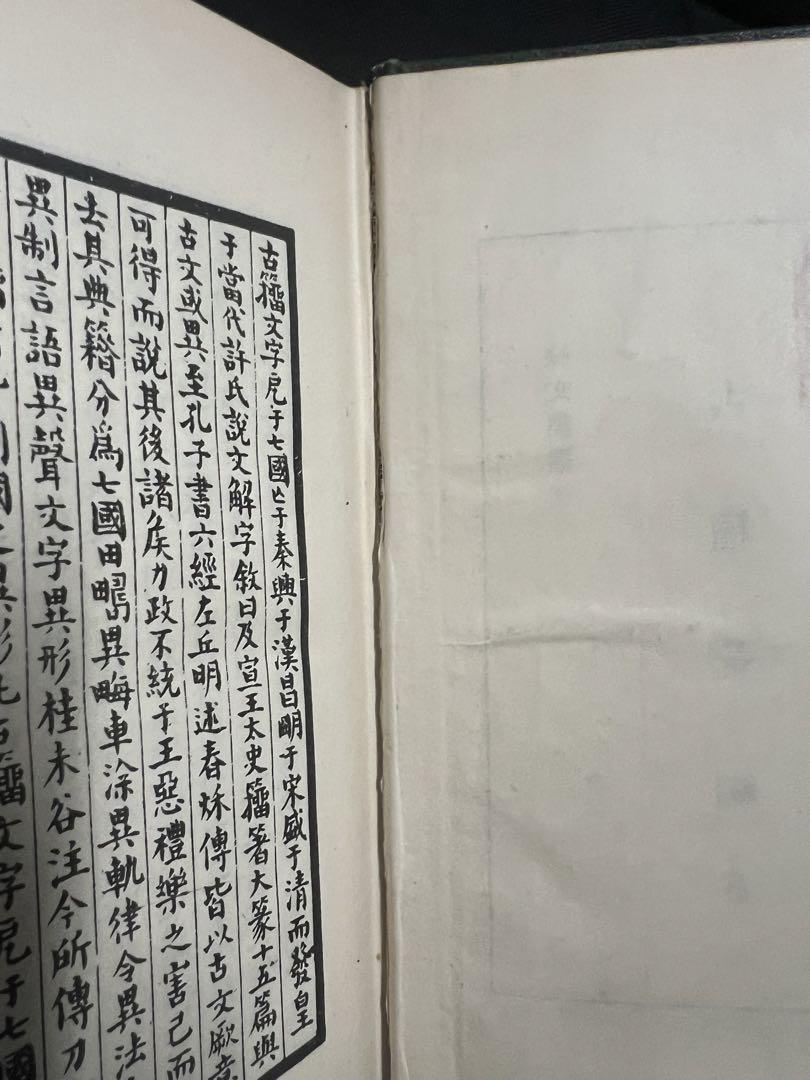 古籒文字戹于七國亾于秦興于漢昌朙于宋盛于清而發皇
于當代許氏說文解字敘曰及宣王太史籒著大篆十五篇與
古文或異至孔子書六經左丘明述春秌傳皆以古文厥意
可得而說其後諸矦力政不統于王惡禮樂之害己而
去其典籍分爲七國田疇異畮車涂異軌律令異法
異制言語異聲文字異形桂未谷注今所傳刀
籒文字戹于七國